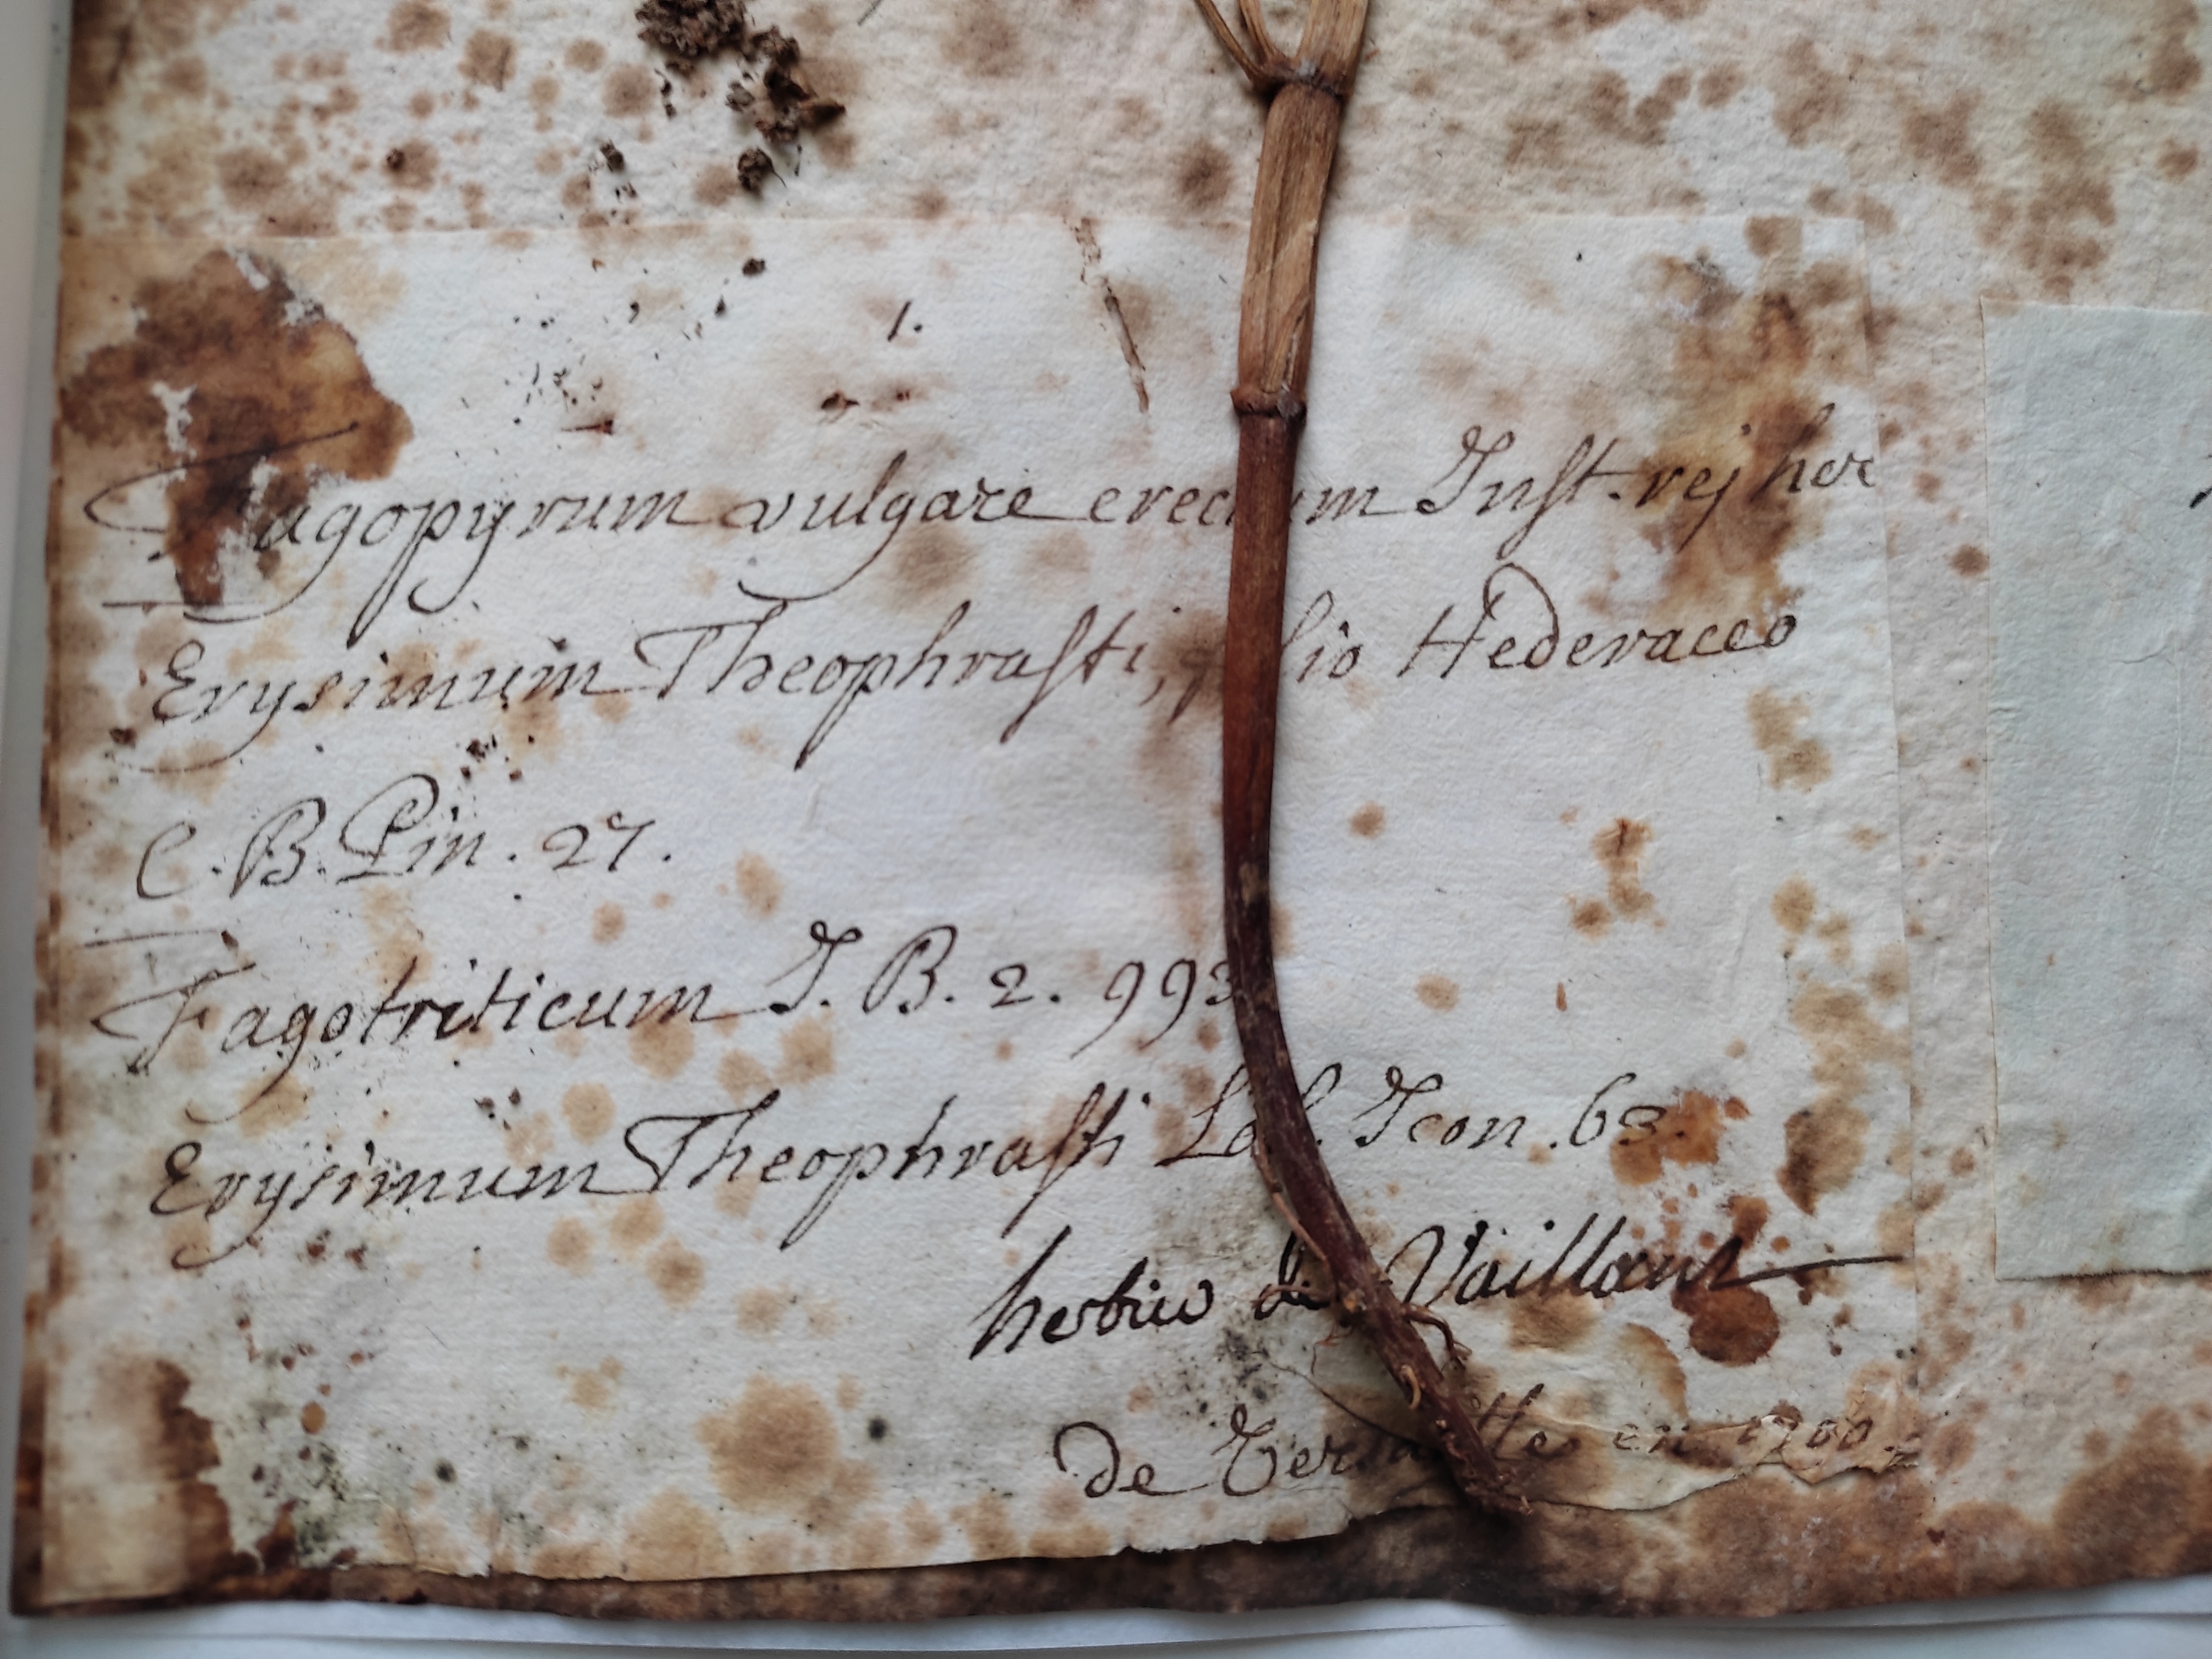 1.
Fagopyrum vulgare erectum Inst. rej her
Erysimum Theophrasti, folio Hederaceo
C. B. Pin. 27.
Fagotriticum J. B. 2. 993
Erysimum Theophrasti Lob. Icon. 63.
Vaillant
de en 1700.